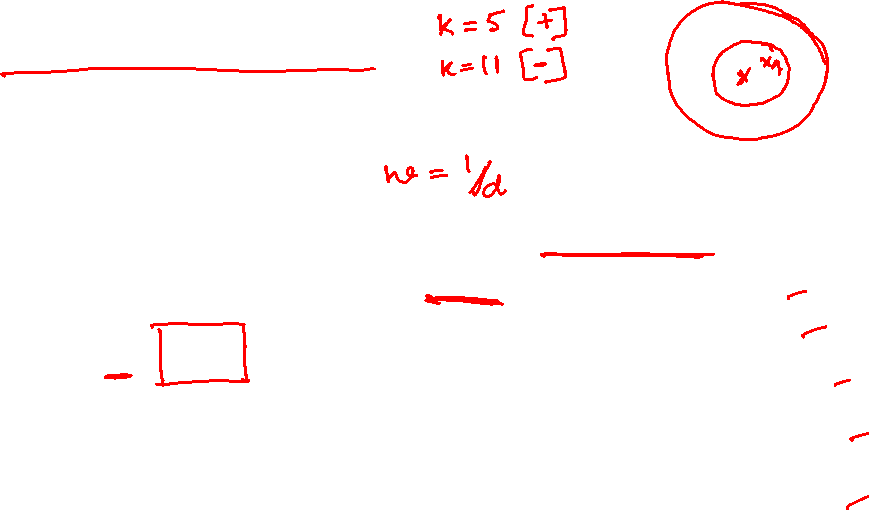 k = 5 [+]
k = 11 [-]
x xq
w = 1/d